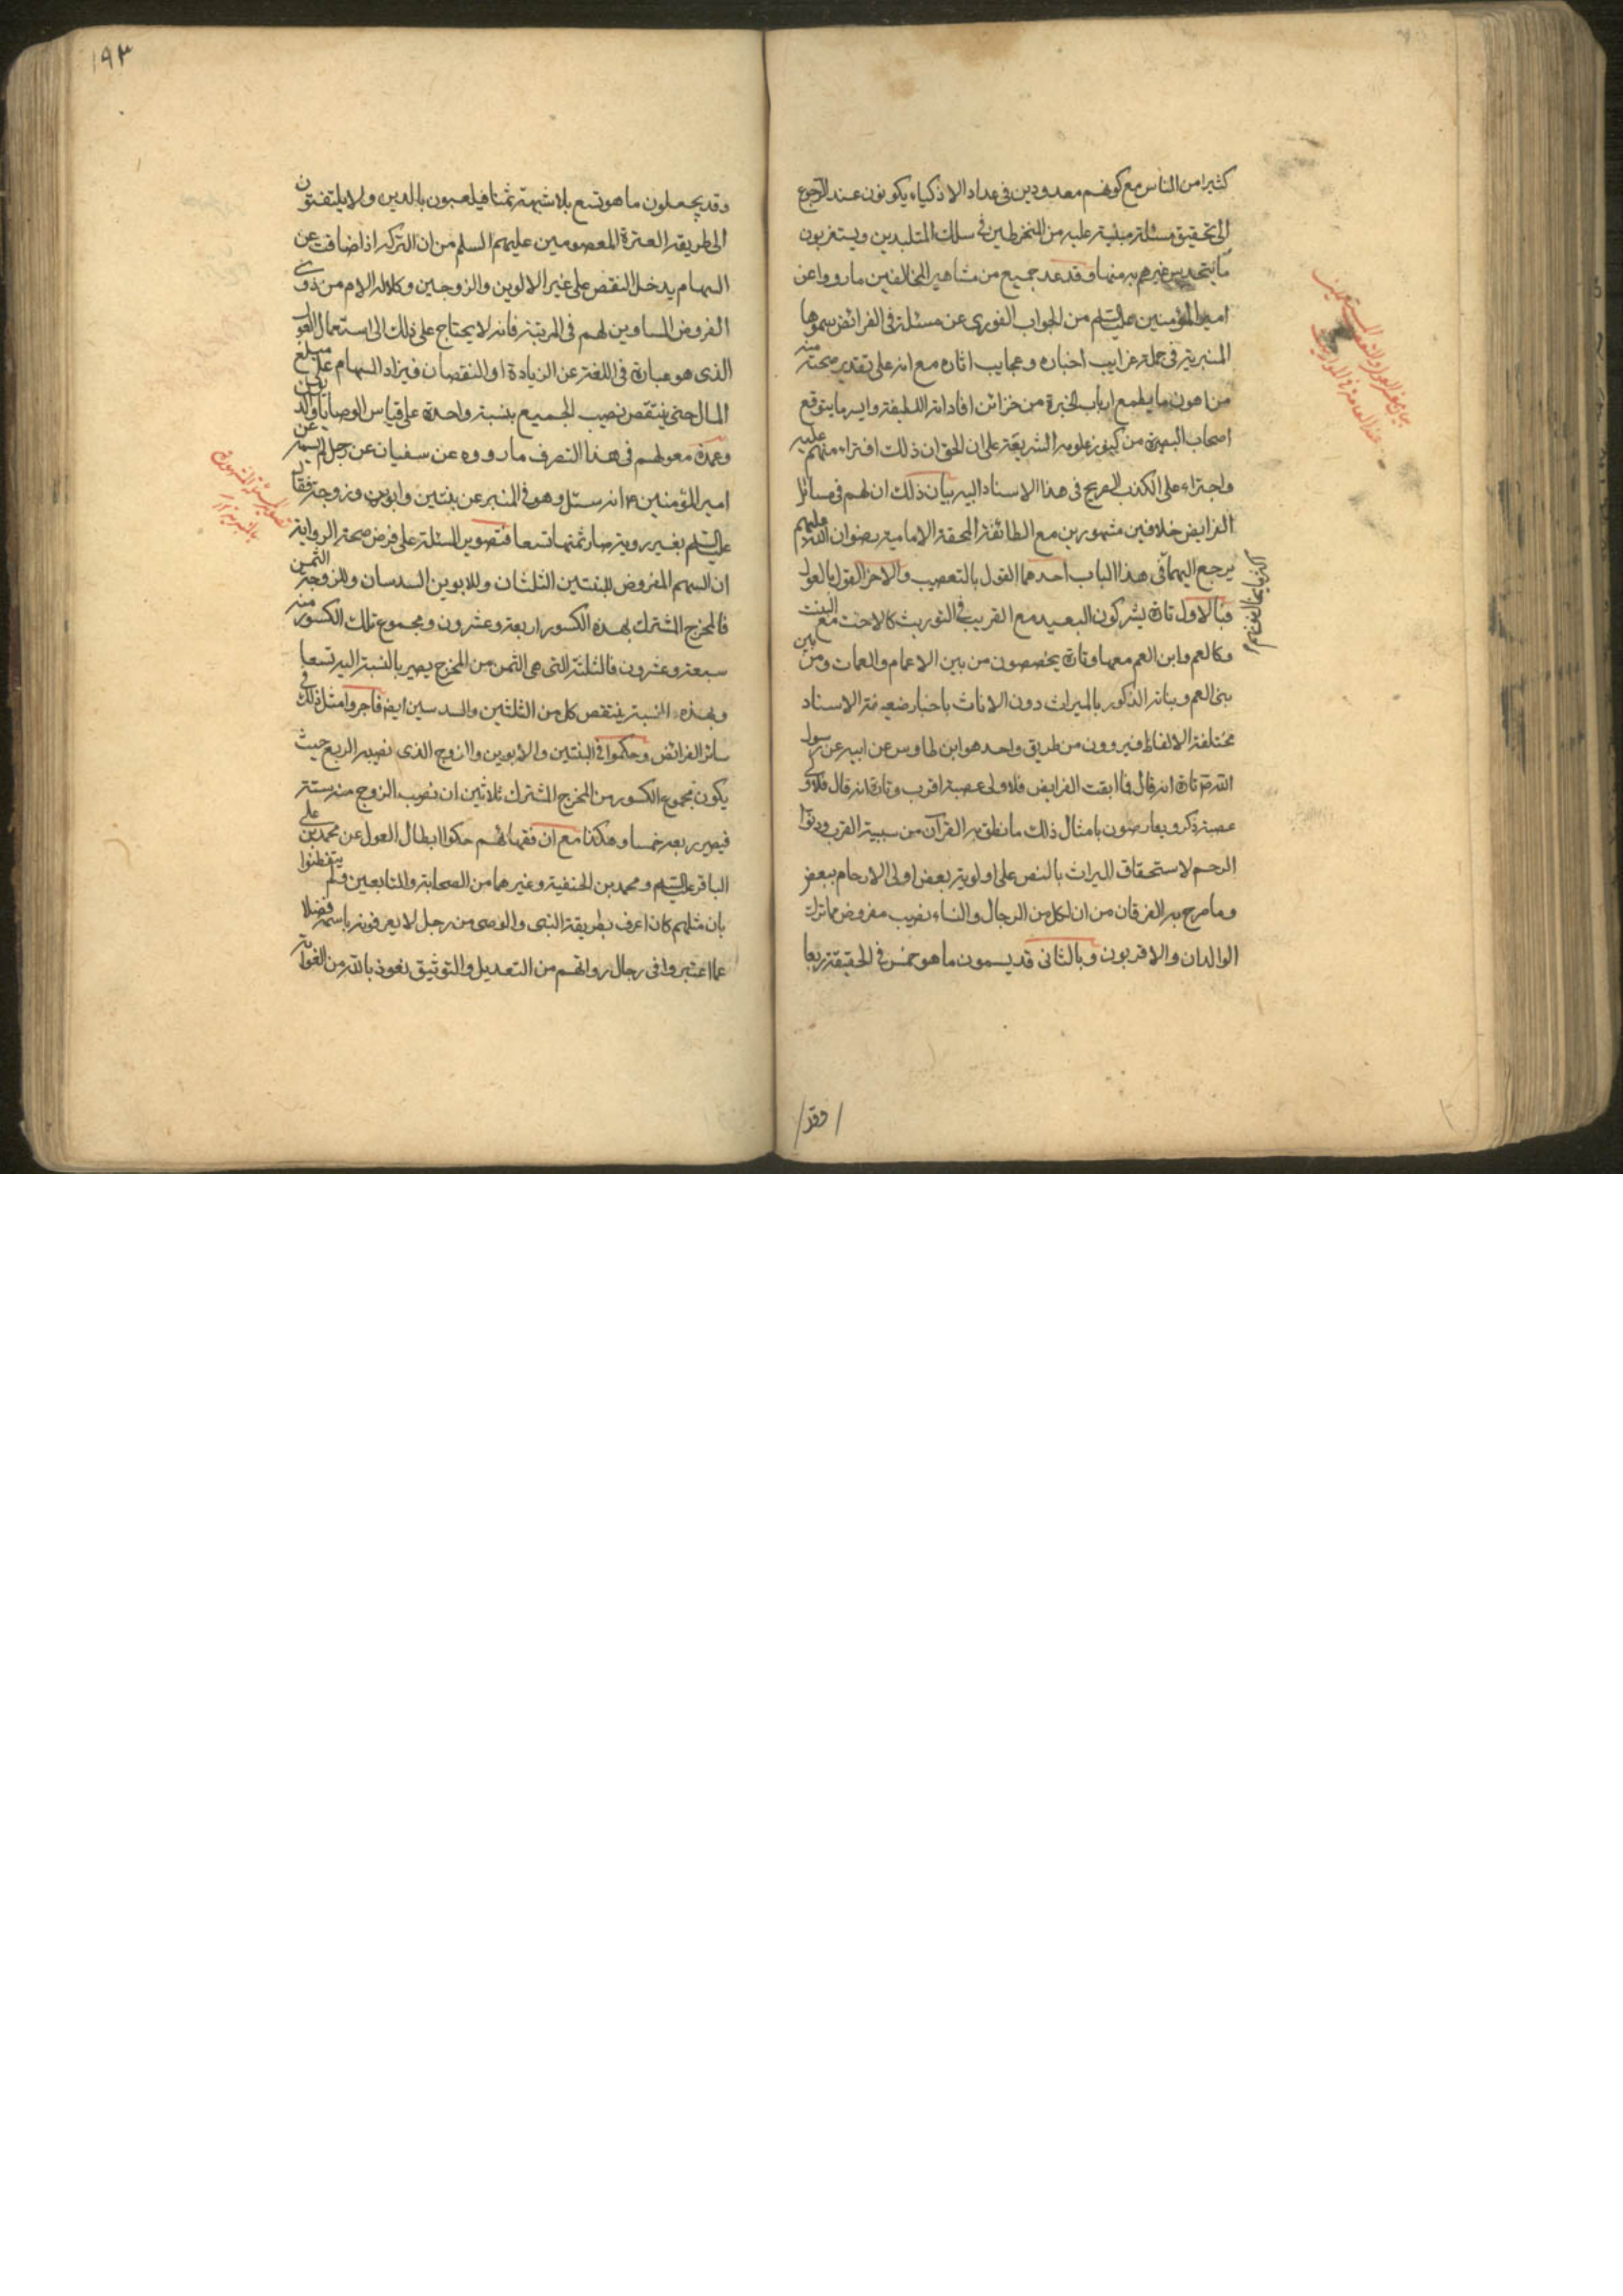 كثيرا من الناس مع كونهم معدودين فى عداد الاذكياء يكونون عند الرجوع
الى تحقيق مسئلة مبنية عليه من المنخرطين فى سلك المتبلدين ويستغربون
ما يتحدس غيرهم به منها وقد عد جميع من مشاهير المخالفين ما رووا عن
امير المؤمنين عليه السلم من الجواب الفورى عن مسئلة فى الفرائض سموها
المنبرية فى جملة غرايب اخباره وعجايب اثاره مع انه على تقدير صحته منه
من اهون ما يطمع ارباب الخبرة من خزائن افاداته اللطيفة وايسر ما يتوقع
اصحاب البصيرة من كنوز علومه الشريفة على ان الحق ان ذلك افتراء منهم عليه
واجتراء على الكذب الصريح فى هذا الاسناد اليه بيان ذلك ان لهم فى مسائل
الفرايض خلافين مشهورين مع الطائفة المحقة الامامية رضوان الله عليهم
يرجع اليهما فى هذا الباب احدهما القول بالتعصيب والاخر القول بالعول
فبالاول تارة يشركون البعيد مع القريب فى التوريث كالاخت مع البنت
وكالعم وابن العم معها وتارة يخصصون من بين الاعمام والعمات ومن بين
بنى العم وبناته الذكور بالميراث دون الاناث باخبار ضعيفة الاسناد
مختلفة الالفاظ فيروون من طريق واحد هو ابن طاوس عن ابيه عن رسول
الله ص تارة انه قال فما ابقت الفرايض فلاولى عصبة اقرب وتارة انه قال فلاولى
عصبة ذكر ويعارضون بامثال ذلك ما نطق به القرآن من سببية القرب ودنو
الرحم لاستحقاق الميراث بالنص على اولوية بعض اولى الارحام ببعض
وما صرح به الفرقان من ان لكل من الرجال والنساء نصيب مفروض مما ترك
الوالدان والاقربون وبالثانى قد يسمون ما هو خمس فى الحقيقة ربعا
وقد
١٩٣
وقد يجعلون ما هو تسع بلا شبهة ثمنا فيلعبون بالدين ولا يلتفتون
الى طريقة العترة المعصومين عليهم السلم من ان التركة اذا ضاقت عن
السهام يدخل النقص على غير الابوين والزوجين وكلالة الام من ذوى
الفروض المساوين لهم فى المرتبة فانه لا يحتاج على ذلك الى استعمال العول
الذى هو عبارة فى اللغة عن الزيادة او النقصان فيزاد السهام على مبلغ
المال حتى ينتقص نصيب الجميع بنسبة واحدة على قياس الوصايا والديون
وعمدة معولهم فى هذا التصرف ما رووه عن سفيان عن رجل لم يسمه عن
امير المؤمنين ع انه سئل وهو فى المنبر عن بنتين وابوين وزوجة فقال
عليه السلم بغير روية صار ثمنها تسعا فتصوير المسئلة على فرض صحة الرواية
ان السهم المفروض للبنتين الثلثان وللابوين السدسان وللزوجة الثمن
فالمخرج المشترك لهذه الكسور اربعة وعشرون ومجموع تلك الكسور منه
سبعة وعشرون فالثلثة التى هى الثمن من المخرج يصير بالنسبة اليه تسعا
وبهذه النسبة ينتقص كل من الثلثين والسدسين ايضا فاجروا مثل ذلك فى
سائر الفرائض وحكموا فى البنتين والابوين والزوج الذى نصيبه الربع حيث
يكون مجموع الكسور من المخرج المشترك ثلاثين ان نصيب الزوج منه ستة
فيصير ربعه خمسا وهكذا مع ان فقهائهم حكوا ابطال العول عن محمد بن على
الباقر عليه السلم ومحمد بن الحنفية وغيرهما من الصحابة والتابعين ولم يتفطنوا
بان مثلهم كان اعرف بطريقة النبى والوصى من رجل لا يعرفونه باسمه فضلا
عما اعتبروا فى رجال رواتهم من التعديل والتوثيق نعوذ بالله من الغواية